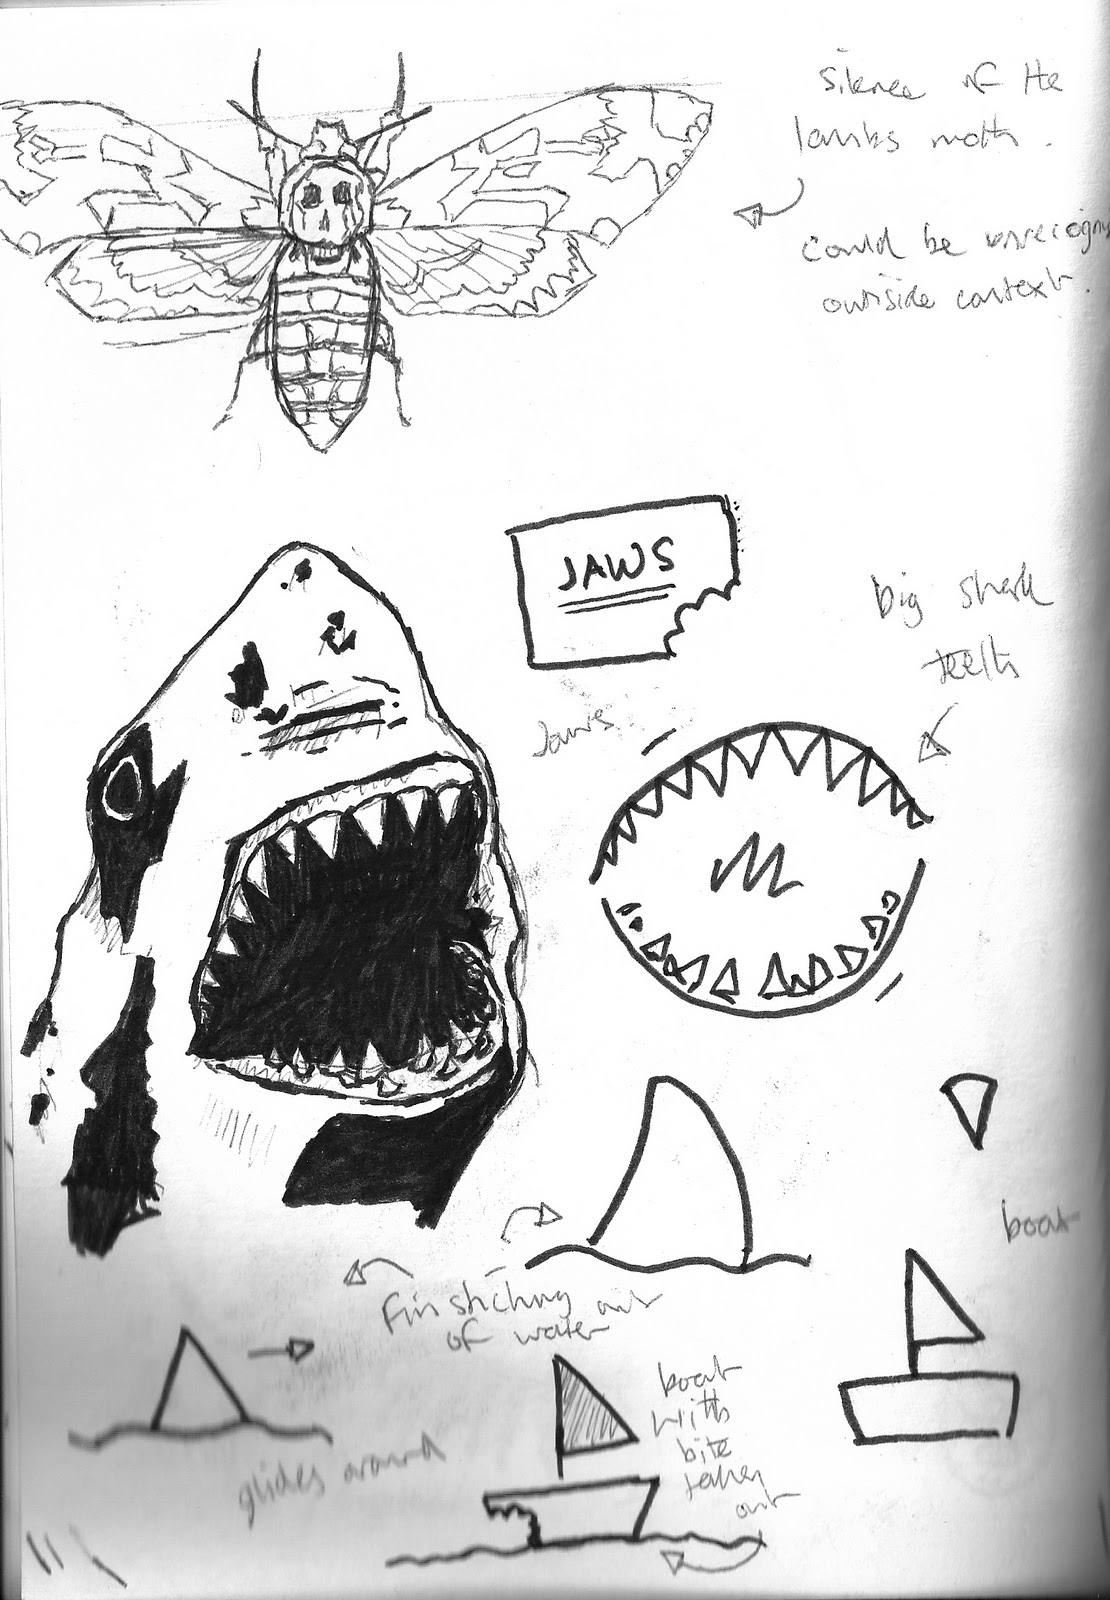 Silence of the
lambs moth.
could be unrecogn
outside context.
JAWS
big shark
teeth
Jaws
boat
Fin sticking out
of water
glides around
boat
with
bite
taken
out